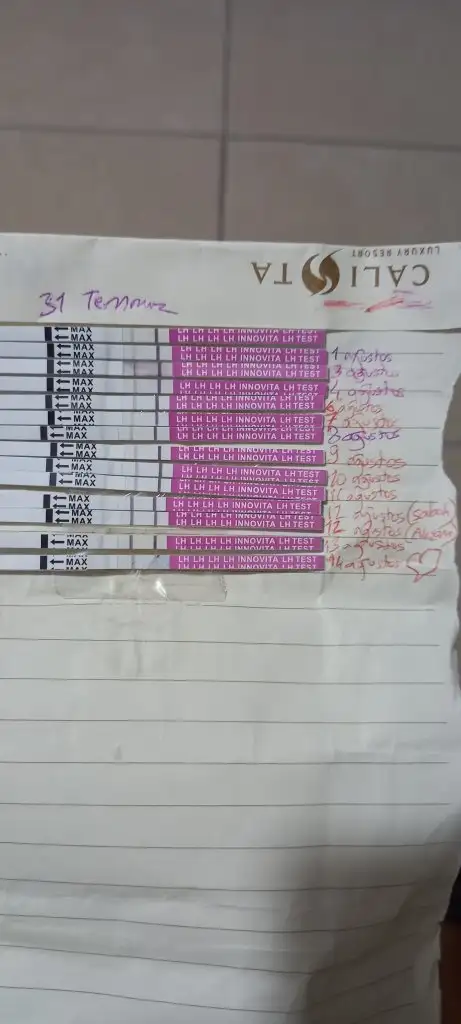 LUXURY RESORT
CALISTA
31 Temmuz
MAX LH LH LH LH INNOVITA LH TEST
MAX LH LH LH LH INNOVITA LH TEST
MAX LH LH LH LH INNOVITA LH TEST 1 ağustos
MAX LH LH LH LH INNOVITA LH TEST 3 ağustos
MAX LH LH LH LH INNOVITA LH TEST 4 ağustos
MAX LH LH LH LH INNOVITA LH TEST ağustos
MAX LH LH LH LH INNOVITA LH TEST 7 ağustos
MAX LH LH LH LH INNOVITA LH TEST 8 ağustos
MAX LH LH LH LH INNOVITA LH TEST 9 ağustos
MAX LH LH LH LH INNOVITA LH TEST 10 ağustos
MAX LH LH LH LH INNOVITA LH TEST 11 ağustos
MAX LH LH LH LH INNOVITA LH TEST 12 ağustos (Sabah)
MAX LH LH LH LH INNOVITA LH TEST 12 ağustos (Akşam)
MAX LH LH LH LH INNOVITA LH TEST 13 ağustos
MAX LH LH LH LH INNOVITA LH TEST 14 ağustos